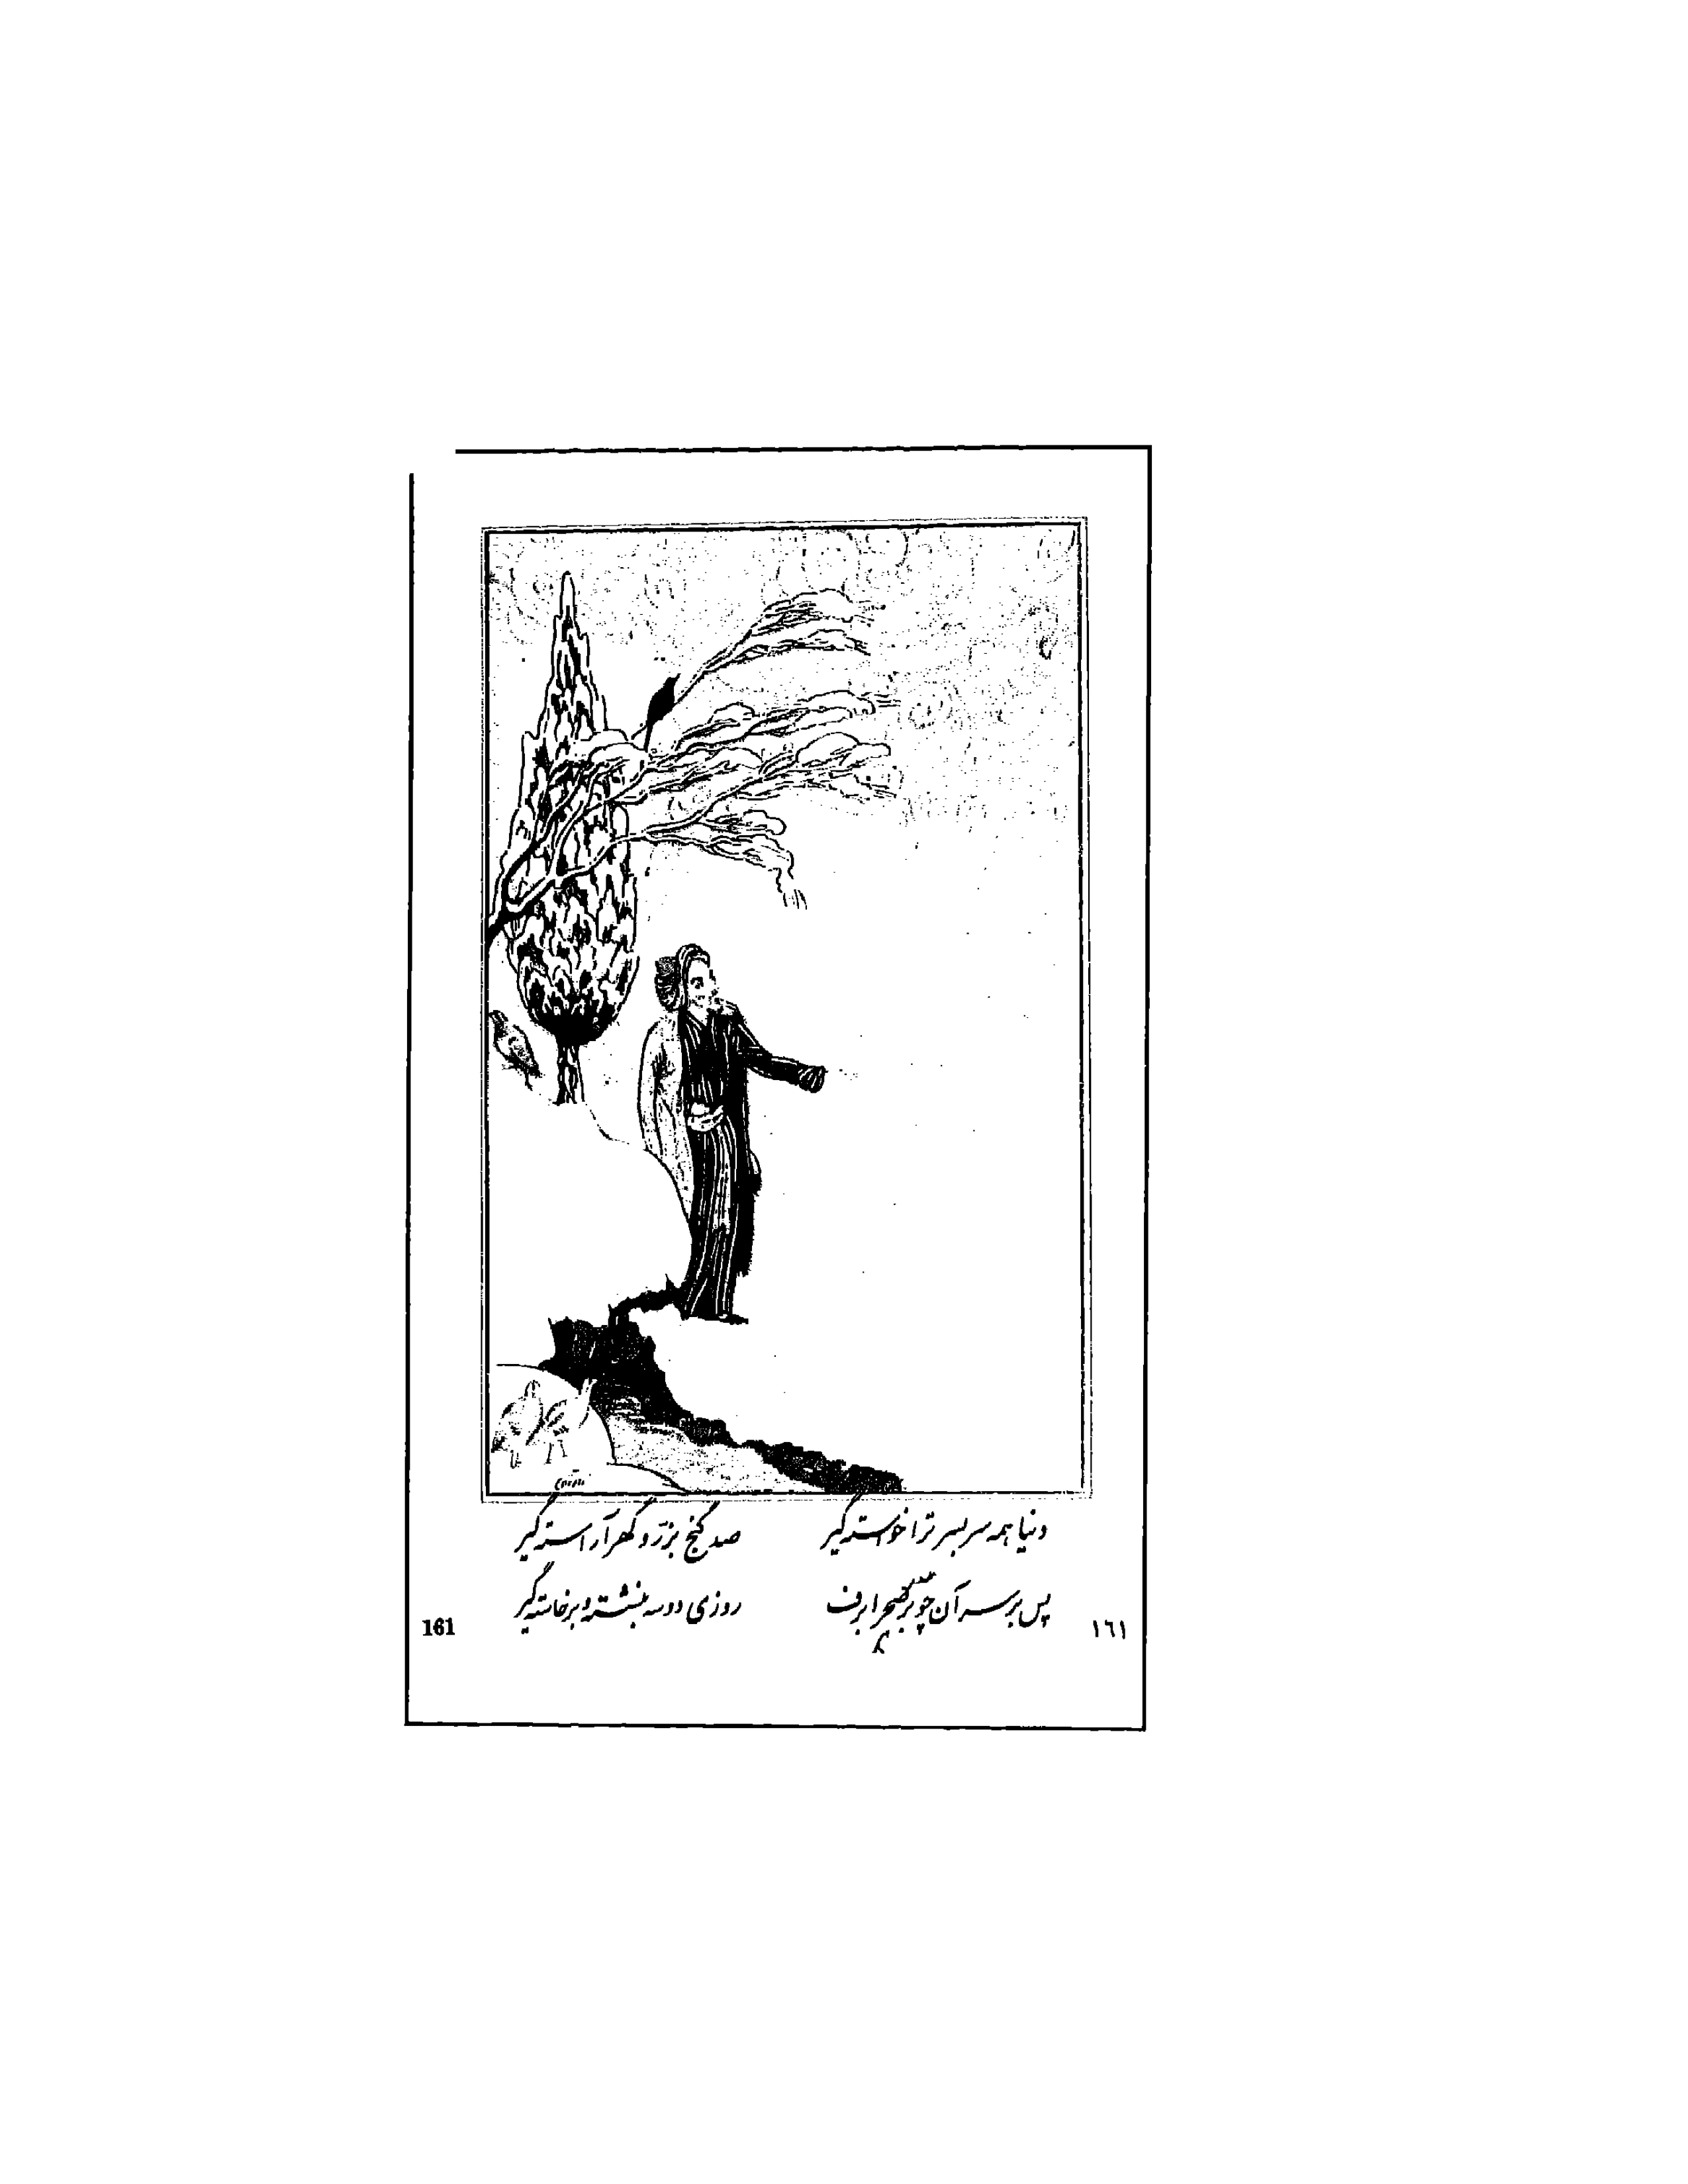 دنیا همه سربسر ترا خواسته گیر صد گنج بزر و گهر آراسته گیر
پس بر سر آن چو برف بر صحرا روزی دو سه بنشسته و برخاسته گیر
161 ١٦١